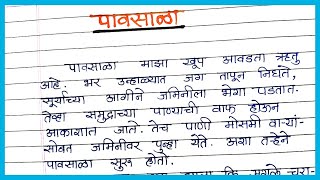 पावसाळा
पावसाळा माझा खूप आवडता ऋतु
आहे. भर उन्हाळ्यात जग तापून निघते,
सूर्याच्या आगीने जमिनीला भेगा पडतात.
तेव्हा समुद्राच्या पाण्याची वाफ होऊन
आकाशात जाते. तेच पाणी मोसमी वाऱ्यां-
सोबत जमिनीवर पुन्हा येते. अशा तऱ्हेने
पावसाळा सुरू होतो.